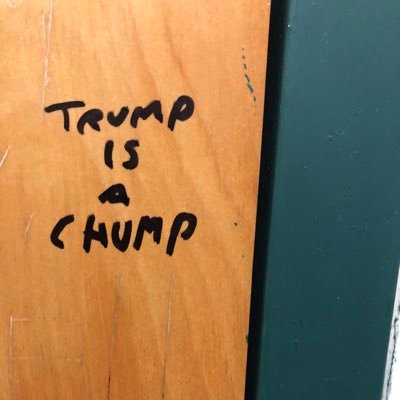 TRUMP
IS
A
CHUMP